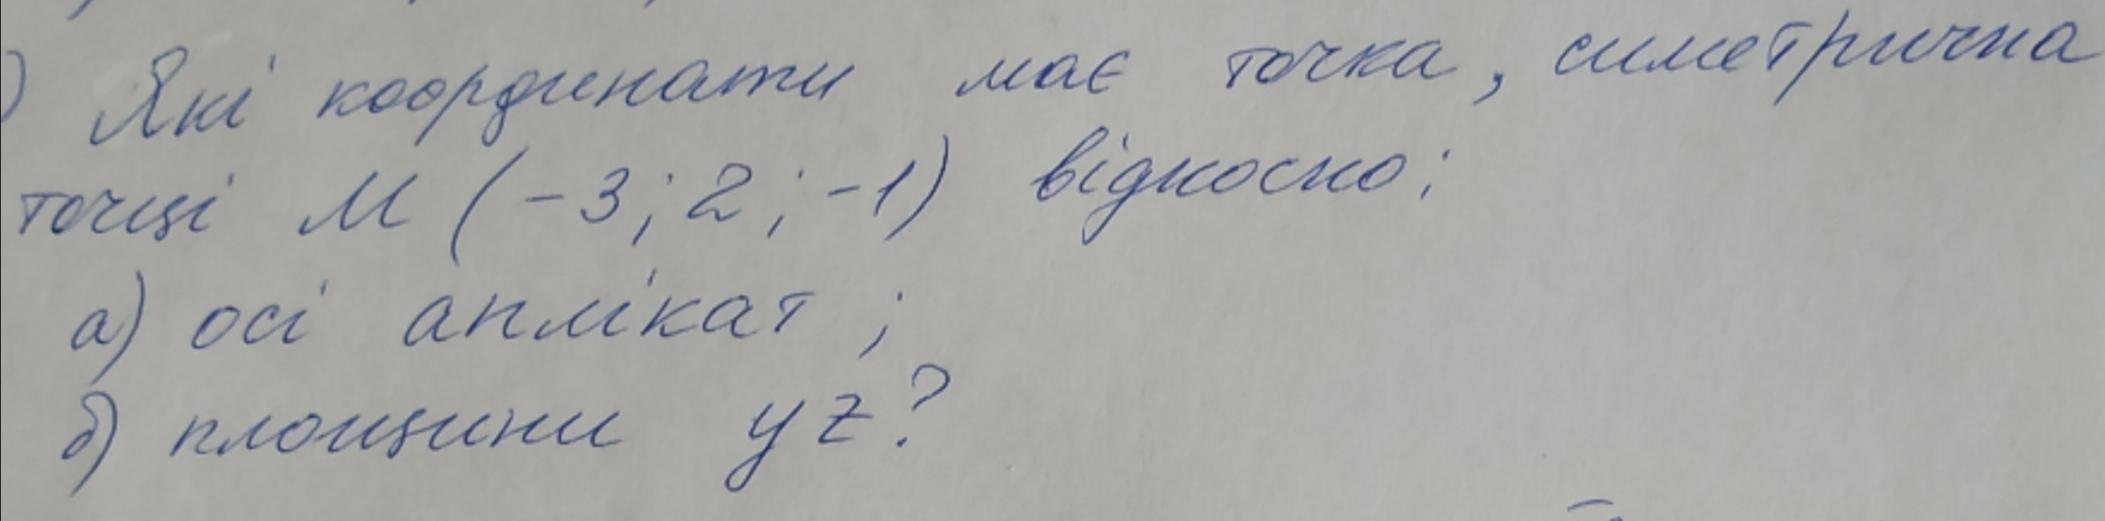 ) Які координати має точка, симетрична
точці М (-3; 2; -1) відносно:
а) осі аплікат;
б) площини yz?